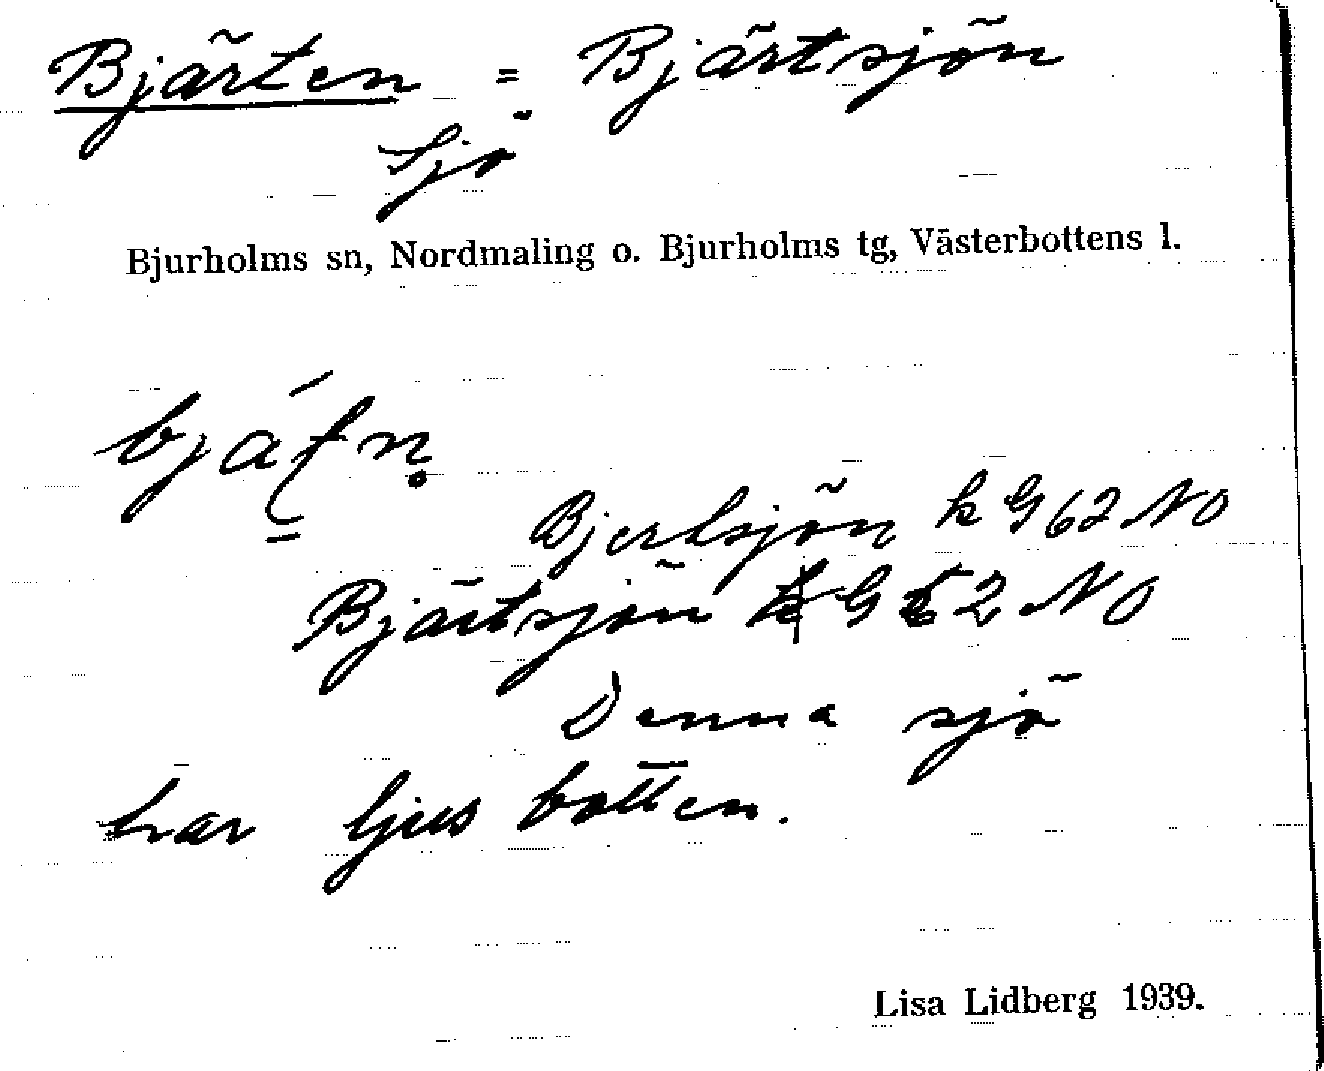 Bjärten = Bjärtsjön
Sjö
Bjurholms sn, Nordmaling o. Bjurholms tg, Västerbottens l.
Bjertsjön k G 62 NO
Bjärtsjön k G 62 NO
Denna sjö
har ljus botten.
Lisa Lidberg 1939.